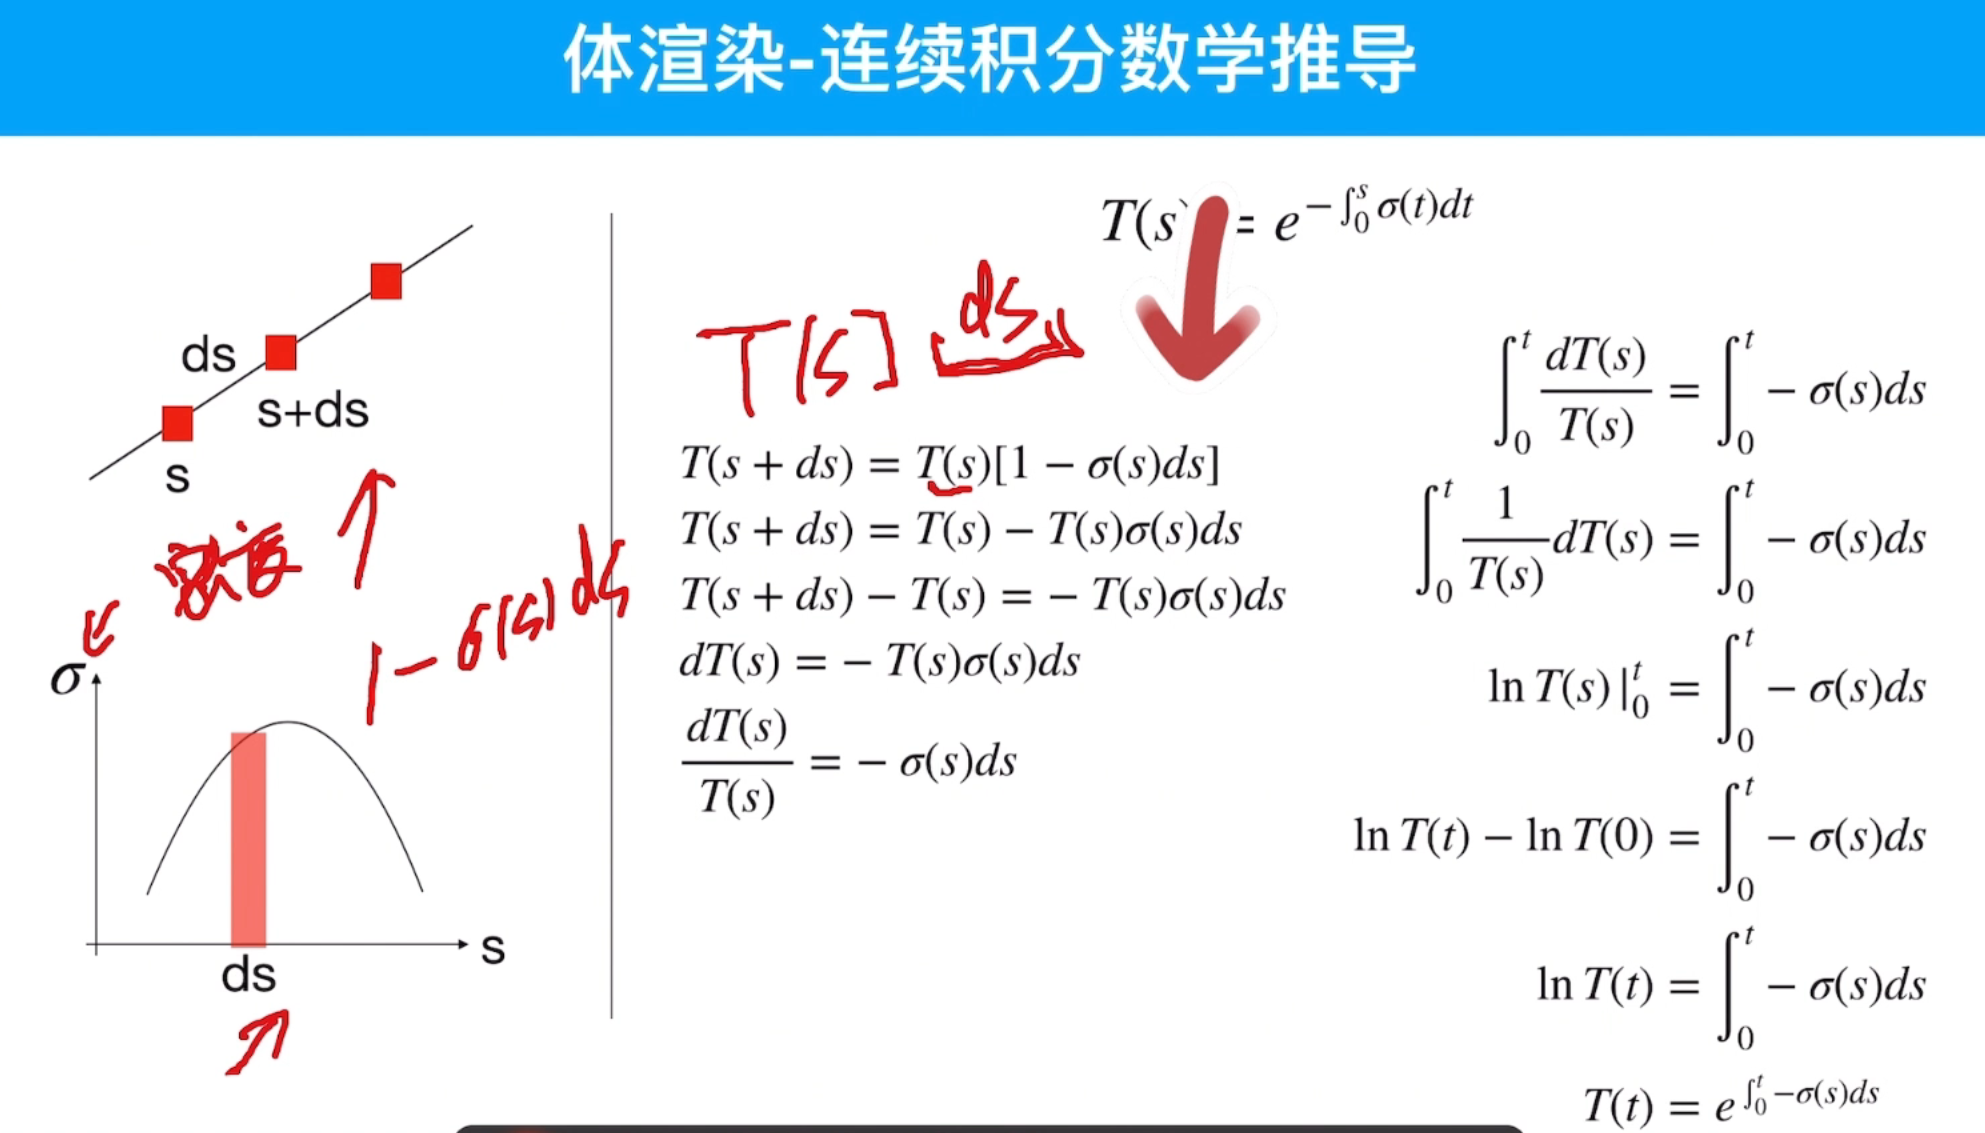 体渲染-连续积分数学推导
T(s) = e^{-∫_0^s σ(t)dt}
ds
s+ds
s
密度
1-σ(s)ds
σ
s
ds
T(s) ds
T(s + ds) = T(s)[1 − σ(s)ds]
T(s + ds) = T(s) − T(s)σ(s)ds
T(s + ds) − T(s) = − T(s)σ(s)ds
dT(s) = − T(s)σ(s)ds
dT(s)/T(s) = − σ(s)ds
∫_0^t dT(s)/T(s) = ∫_0^t − σ(s)ds
∫_0^t 1/T(s) dT(s) = ∫_0^t − σ(s)ds
ln T(s)|_0^t = ∫_0^t − σ(s)ds
ln T(t) − ln T(0) = ∫_0^t − σ(s)ds
ln T(t) = ∫_0^t − σ(s)ds
T(t) = e^{∫_0^t −σ(s)ds}